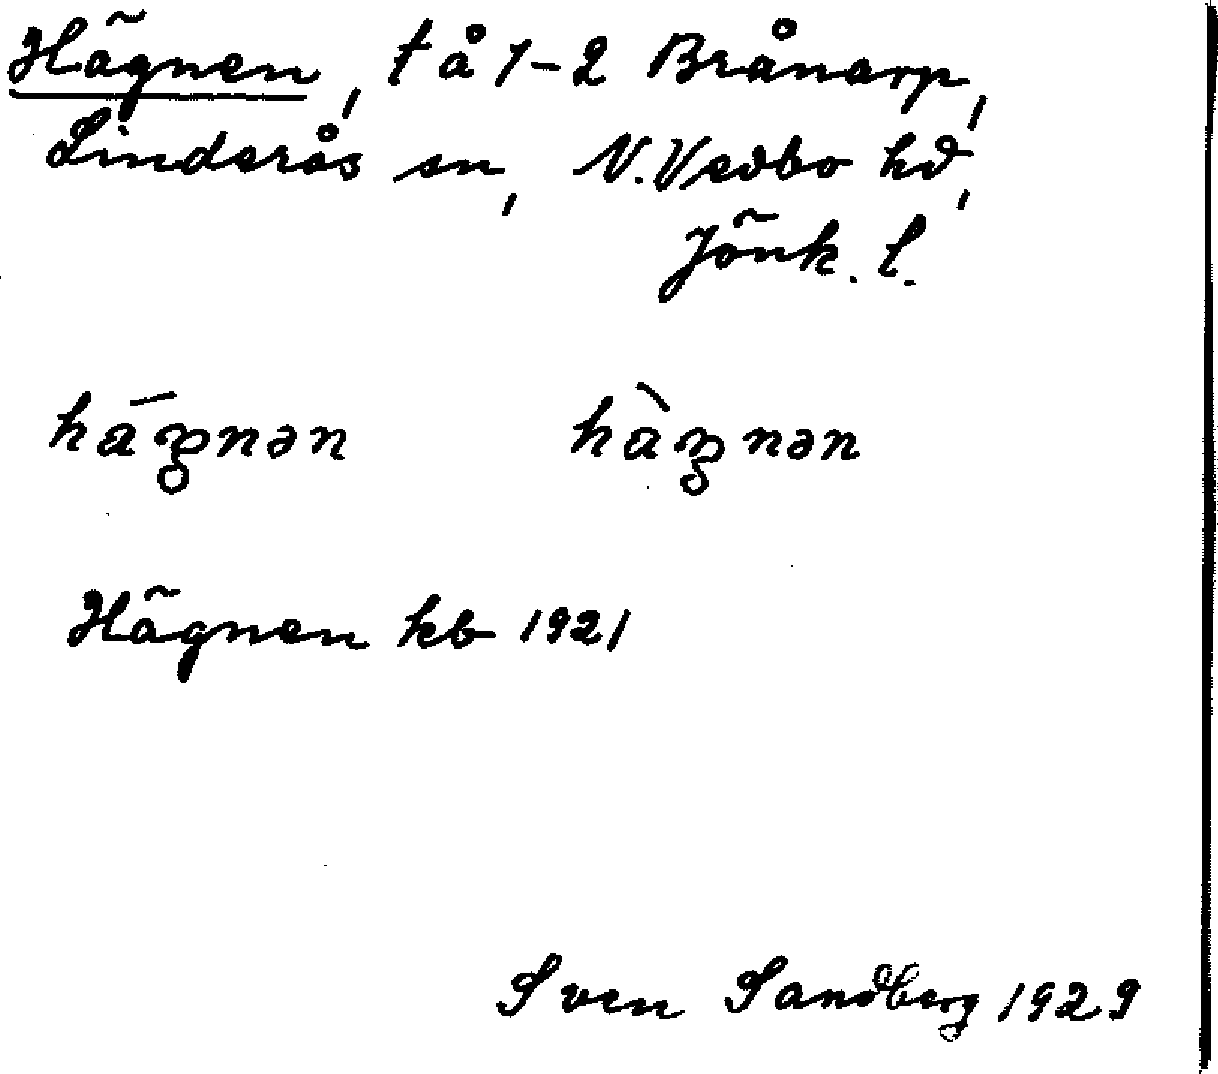 Hägnen, t å 1-2 Brånarp,
Linderås sn, N. Vedbo hd,
Jönk. l.
hä́ŋnən hä̀ŋnən
Hägnen kb 1921
Sven Sandberg 1929